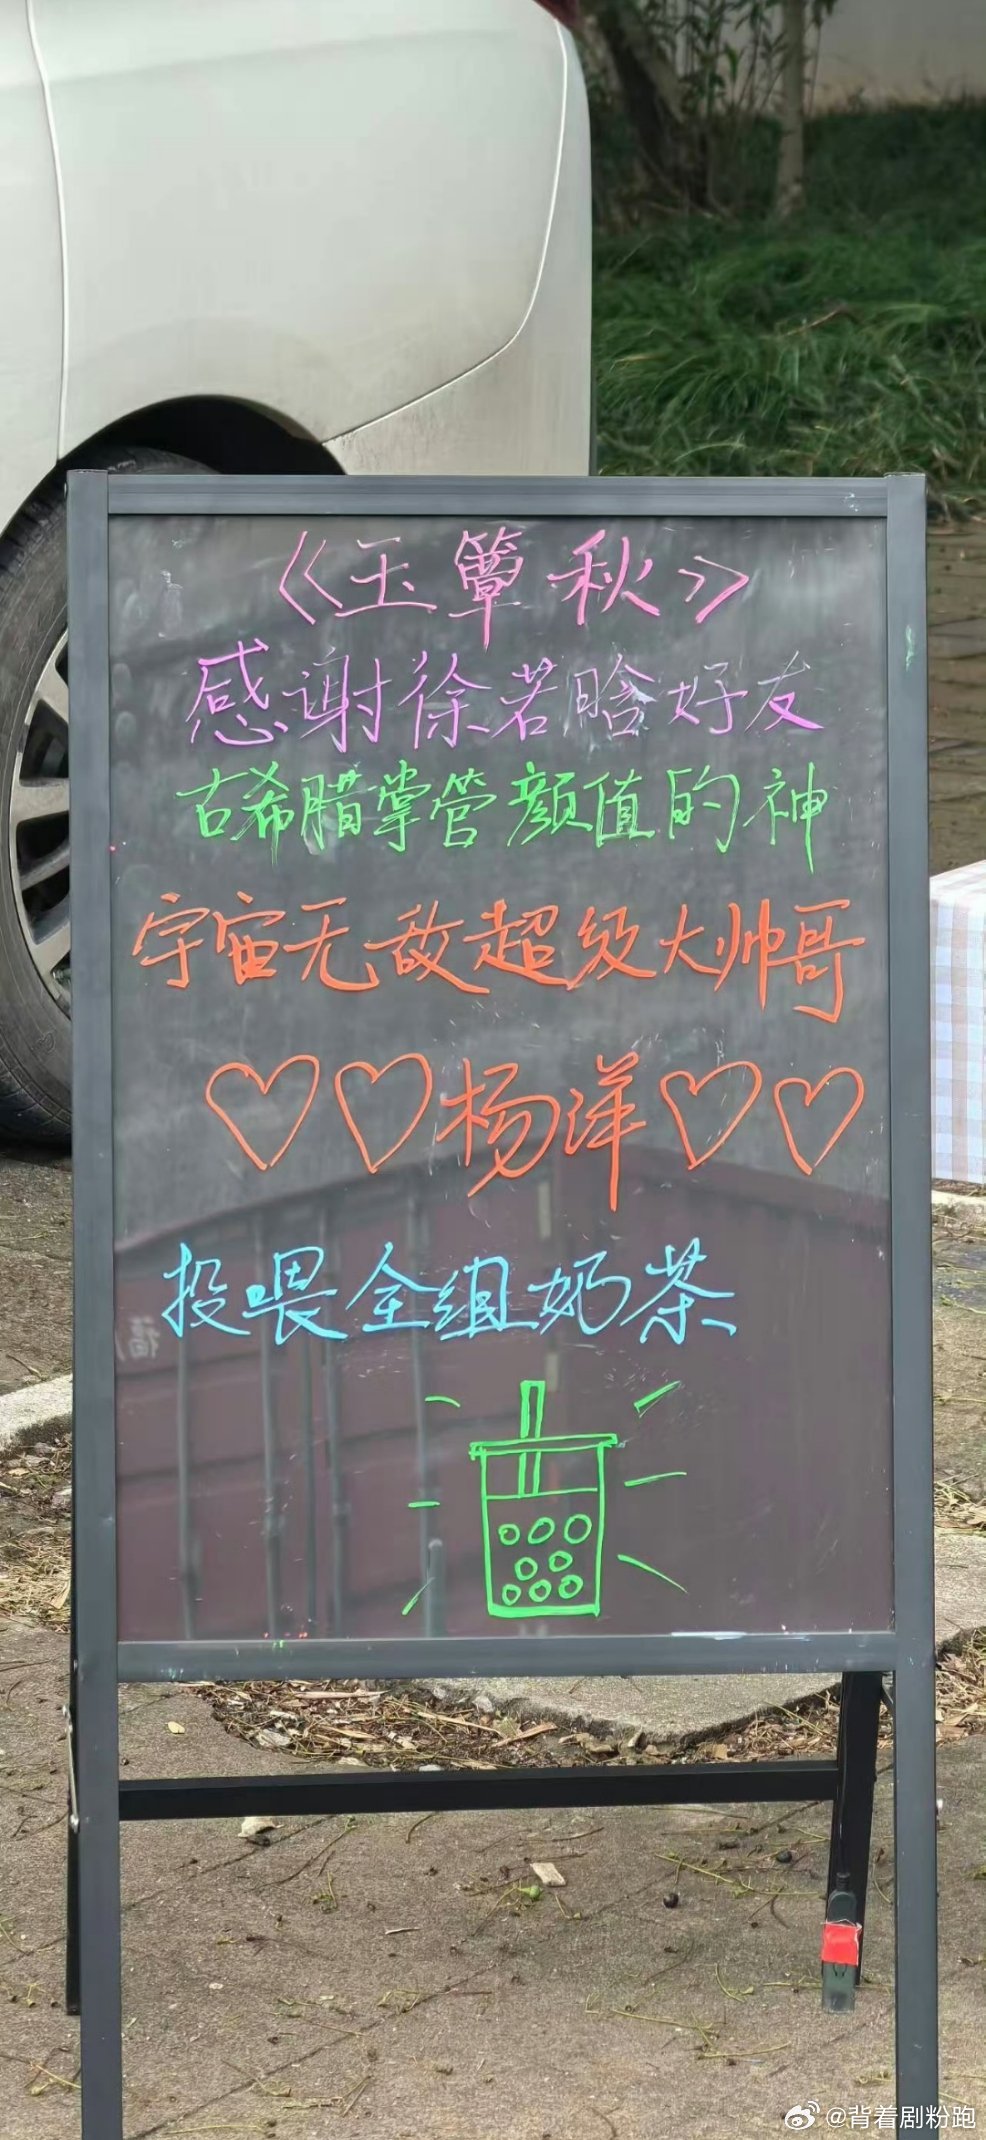 《玉簟秋》
感谢徐若晗好友
古希腊掌管颜值的神
宇宙无敌超级大帅哥
♡♡杨洋♡♡
投喂全组奶茶
福
@背着剧粉跑